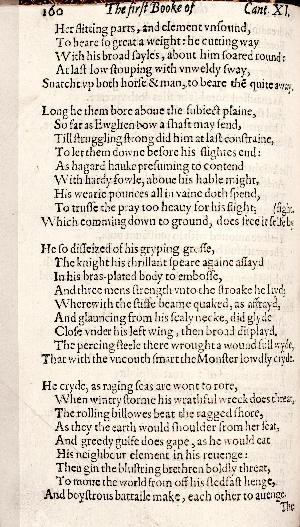 160 The first Booke of Cant. XI.
Her flitting parts, and element vnsound,
To beare so great a weight: he cutting way
With his broad sayles, about him soared round:
At last low stouping with vnweldy sway,
Snatcht vp both horse & man, to beare thē quite away.
Long he them bore aboue the subiect plaine,
So far as Ewghen bow a shaft may send,
Till struggling strong did him at last constraine,
To let them downe before his flightes end:
As hagard hauke presuming to contend
With hardy fowle, aboue his hable might,
His wearie pounces all in vaine doth spend,
To trusse the pray too heauy for his flight;
Which comming down to ground, does free it selfe by
(fight.
He so disseized of his gryping grosse,
The knight his thrillant speare againe assayd
In his bras-plated body to embosse,
And three mens strength vnto the stroake he layd;
Wherewith the stiffe beame quaked, as affrayd,
And glauncing from his scaly necke, did glyde
Close vnder his left wing, then broad displayd.
The percing steele there wrought a wound full wyde,
That with the vncouth smart the Monster lowdly cryde.
He cryde, as raging seas are wont to rore,
When wintry storme his wrathfull wreck does threat,
The rolling billowes beat the ragged shore,
As they the earth would shoulder from her seat,
And greedy gulfe does gape, as he would eat
His neighbour element in his reuenge:
Then gin the blustring brethren boldly threat,
To moue the world from off his stedfast henge,
And boystrous battaile make, each other to auenge.
The